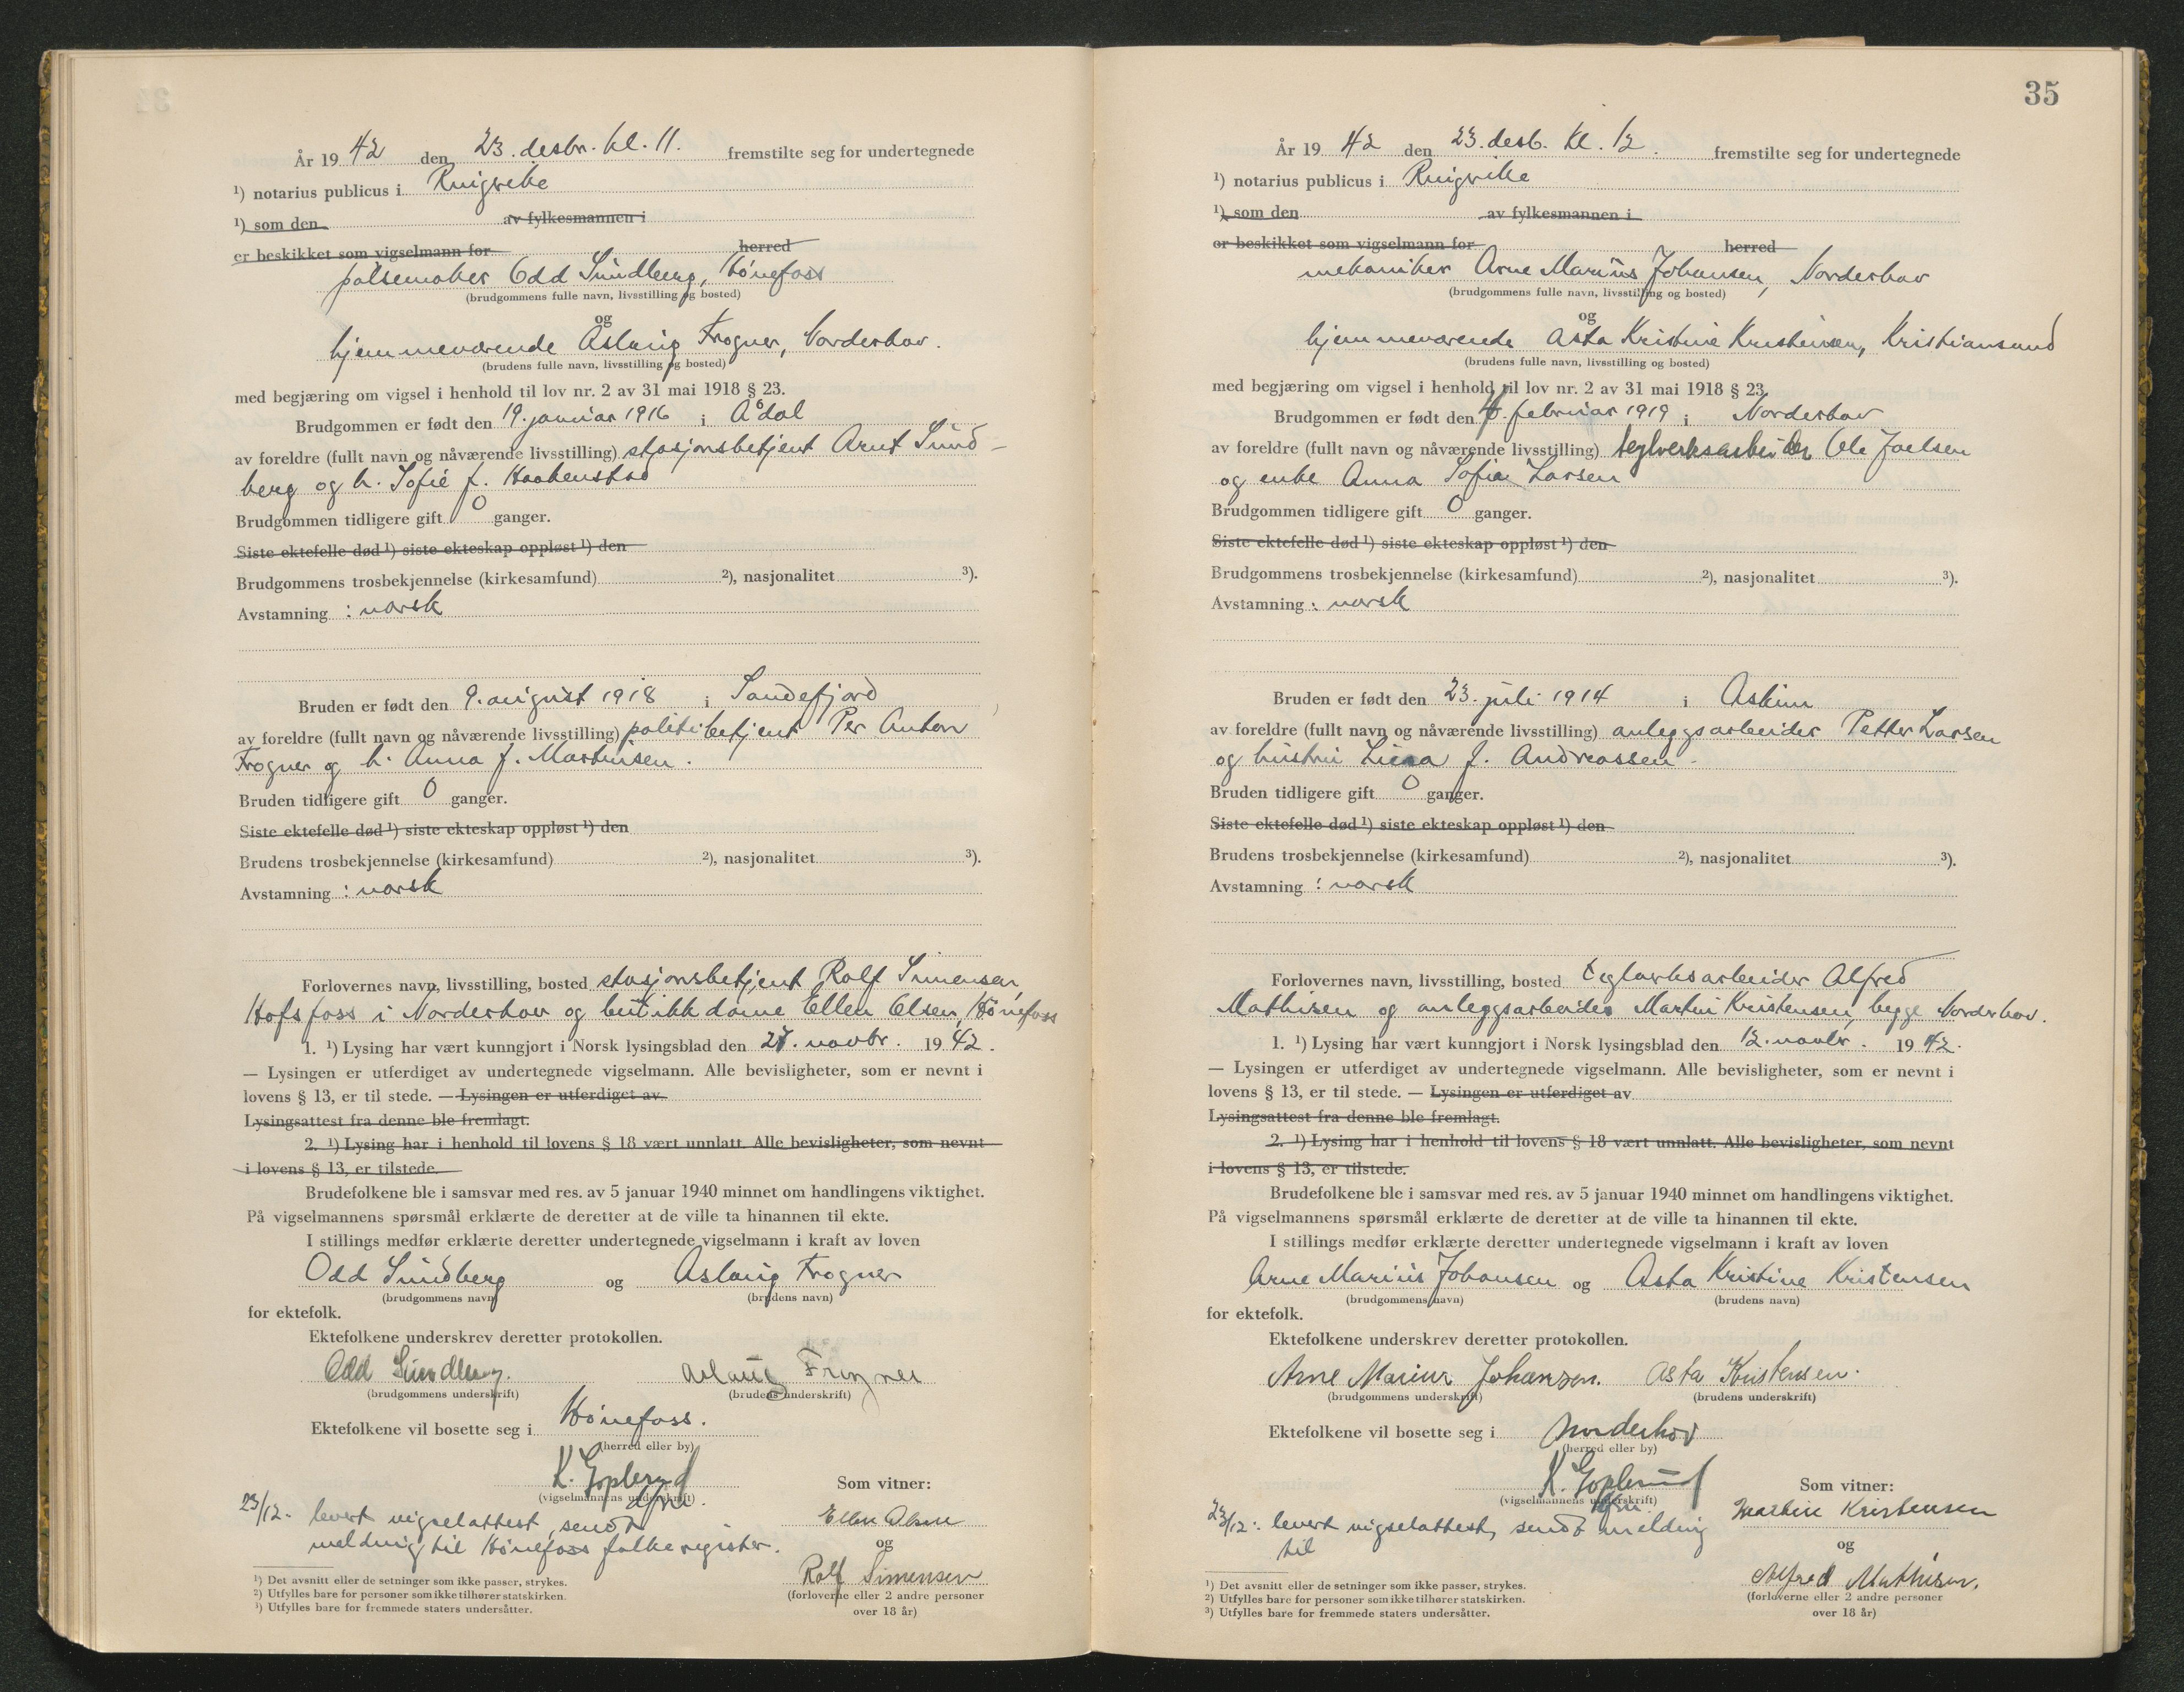 År 19 42 den 23. desbr. kl. 11. fremstilte seg for undertegnede
¹) notarius publicus i Ringerike
¹) som den av fylkesmannen i
er beskikket som vigselmann for herred
pølsemaker Odd Sundberg, Hönefoss
(brudgommens fulle navn, livsstilling og bosted)
og
hjemmeværende Aslaug Frogner, Norderhov.
(brudens fulle navn, livsstilling og bosted)
med begjæring om vigsel i henhold til lov nr. 2 av 31 mai 1918 § 23.
Brudgommen er født den 19. januar 1916 i Ådal
av foreldre (fullt navn og nåværende livsstilling) stasjonsbetjent Arnt Sund-
berg og h. Sofie f. Haakenstad
Brudgommen tidligere gift 0 ganger.
Siste ektefelle død ¹) siste ekteskap oppløst ¹) den
Brudgommens trosbekjennelse (kirkesamfund) ²), nasjonalitet ³).
Avstamning : norsk
Bruden er født den 9. august 1918 i Sandefjord
av foreldre (fullt navn og nåværende livsstilling) politibetjent Per Anton
Frogner og h. Anna f. Martinsen.
Bruden tidligere gift 0 ganger.
Siste ektefelle død ¹) siste ekteskap oppløst ¹) den
Brudens trosbekjennelse (kirkesamfund) ²), nasjonalitet ³).
Avstamning : norsk
Forlovernes navn, livsstilling, bosted stasjonsbetjent Rolf Simensen,
Hofsfoss i Norderhov og butikkdame Ellen Olsen, Hönefoss
1. ¹) Lysing har vært kunngjort i Norsk lysingsblad den 27. novbr. 19 42.
— Lysingen er utferdiget av undertegnede vigselmann. Alle bevisligheter, som er nevnt i
lovens § 13, er til stede. — Lysingen er utferdiget av
Lysingsattest fra denne ble fremlagt.
2. ¹) Lysing har i henhold til lovens § 18 vært unnlatt. Alle bevisligheter, som nevnt
i lovens § 13, er tilstede.
Brudefolkene ble i samsvar med res. av 5 januar 1940 minnet om handlingens viktighet.
På vigselmannens spørsmål erklærte de deretter at de ville ta hinannen til ekte.
I stillings medfør erklærte deretter undertegnede vigselmann i kraft av loven
Odd Sundberg og Aslaug Frogner
(brudgommens navn) (brudens navn)
for ektefolk.
Ektefolkene underskrev deretter protokollen.
Odd Sundberg. Aslaug Frogner
(brudgommens underskrift) (brudens underskrift)
Ektefolkene vil bosette seg i Hönefoss.
(herred eller by)
K. Goplerud
(vigselmannens underskrift)
Som vitner:
23/12. levert vigselattest, sendt
Ellen Olsen
melding til Hönefoss folkeregister.
og
Rolf Simensen
(forloverne eller 2 andre personer
over 18 år)
¹) Det avsnitt eller de setninger som ikke passer, strykes.
²) Utfylles bare for personer som ikke tilhører statskirken.
³) Utfylles bare for fremmede staters undersåtter.
35
År 19 42 den 23. desb. kl. 12. fremstilte seg for undertegnede
¹) notarius publicus i Ringerike
¹) som den av fylkesmannen i
er beskikket som vigselmann for herred
mekaniker Arne Marius Johansen, Norderhov
(brudgommens fulle navn, livsstilling og bosted)
og
hjemmeværende Asta Kristine Kristensen, Kristiansund
(brudens fulle navn, livsstilling og bosted)
med begjæring om vigsel i henhold til lov nr. 2 av 31 mai 1918 § 23.
Brudgommen er født den februar 1919 i Norderhov
av foreldre (fullt navn og nåværende livsstilling) teglverksarbeider Ole Joelsen
og enke Anna Sofie Larsen
Brudgommen tidligere gift 0 ganger.
Siste ektefelle død ¹) siste ekteskap oppløst ¹) den
Brudgommens trosbekjennelse (kirkesamfund) ²), nasjonalitet ³).
Avstamning : norsk
Bruden er født den 23. juli 1914 i Askim
av foreldre (fullt navn og nåværende livsstilling) anleggsarbeider Petter Larsen
og hustru f. Andreassen.
Bruden tidligere gift 0 ganger.
Siste ektefelle død ¹) siste ekteskap oppløst ¹) den
Brudens trosbekjennelse (kirkesamfund) ²), nasjonalitet ³).
Avstamning : norsk
Forlovernes navn, livsstilling, bosted teglverksarbeider Alfred
Mathisen og anleggsarbeider Martin Kristensen, begge Norderhov.
1. ¹) Lysing har vært kunngjort i Norsk lysingsblad den 12. novbr. 19 42.
— Lysingen er utferdiget av undertegnede vigselmann. Alle bevisligheter, som er nevnt i
lovens § 13, er til stede. — Lysingen er utferdiget av
Lysingsattest fra denne ble fremlagt.
2. ¹) Lysing har i henhold til lovens § 18 vært unnlatt. Alle bevisligheter, som nevnt
i lovens § 13, er tilstede.
Brudefolkene ble i samsvar med res. av 5 januar 1940 minnet om handlingens viktighet.
På vigselmannens spørsmål erklærte de deretter at de ville ta hinannen til ekte.
I stillings medfør erklærte deretter undertegnede vigselmann i kraft av loven
Arne Marius Johansen og Asta Kristine Kristensen
(brudgommens navn) (brudens navn)
for ektefolk.
Ektefolkene underskrev deretter protokollen.
Arne Marius Johansen. Asta Kristensen.
(brudgommens underskrift) (brudens underskrift)
Ektefolkene vil bosette seg i Norderhov
(herred eller by)
K. Goplerud
(vigselmannens underskrift)
Som vitner:
23/12. levert vigselattest, sendt melding
Martin Kristensen
til
og
Alfred Mathisen.
(forloverne eller 2 andre personer
over 18 år)
¹) Det avsnitt eller de setninger som ikke passer, strykes.
²) Utfylles bare for personer som ikke tilhører statskirken.
³) Utfylles bare for fremmede staters undersåtter.